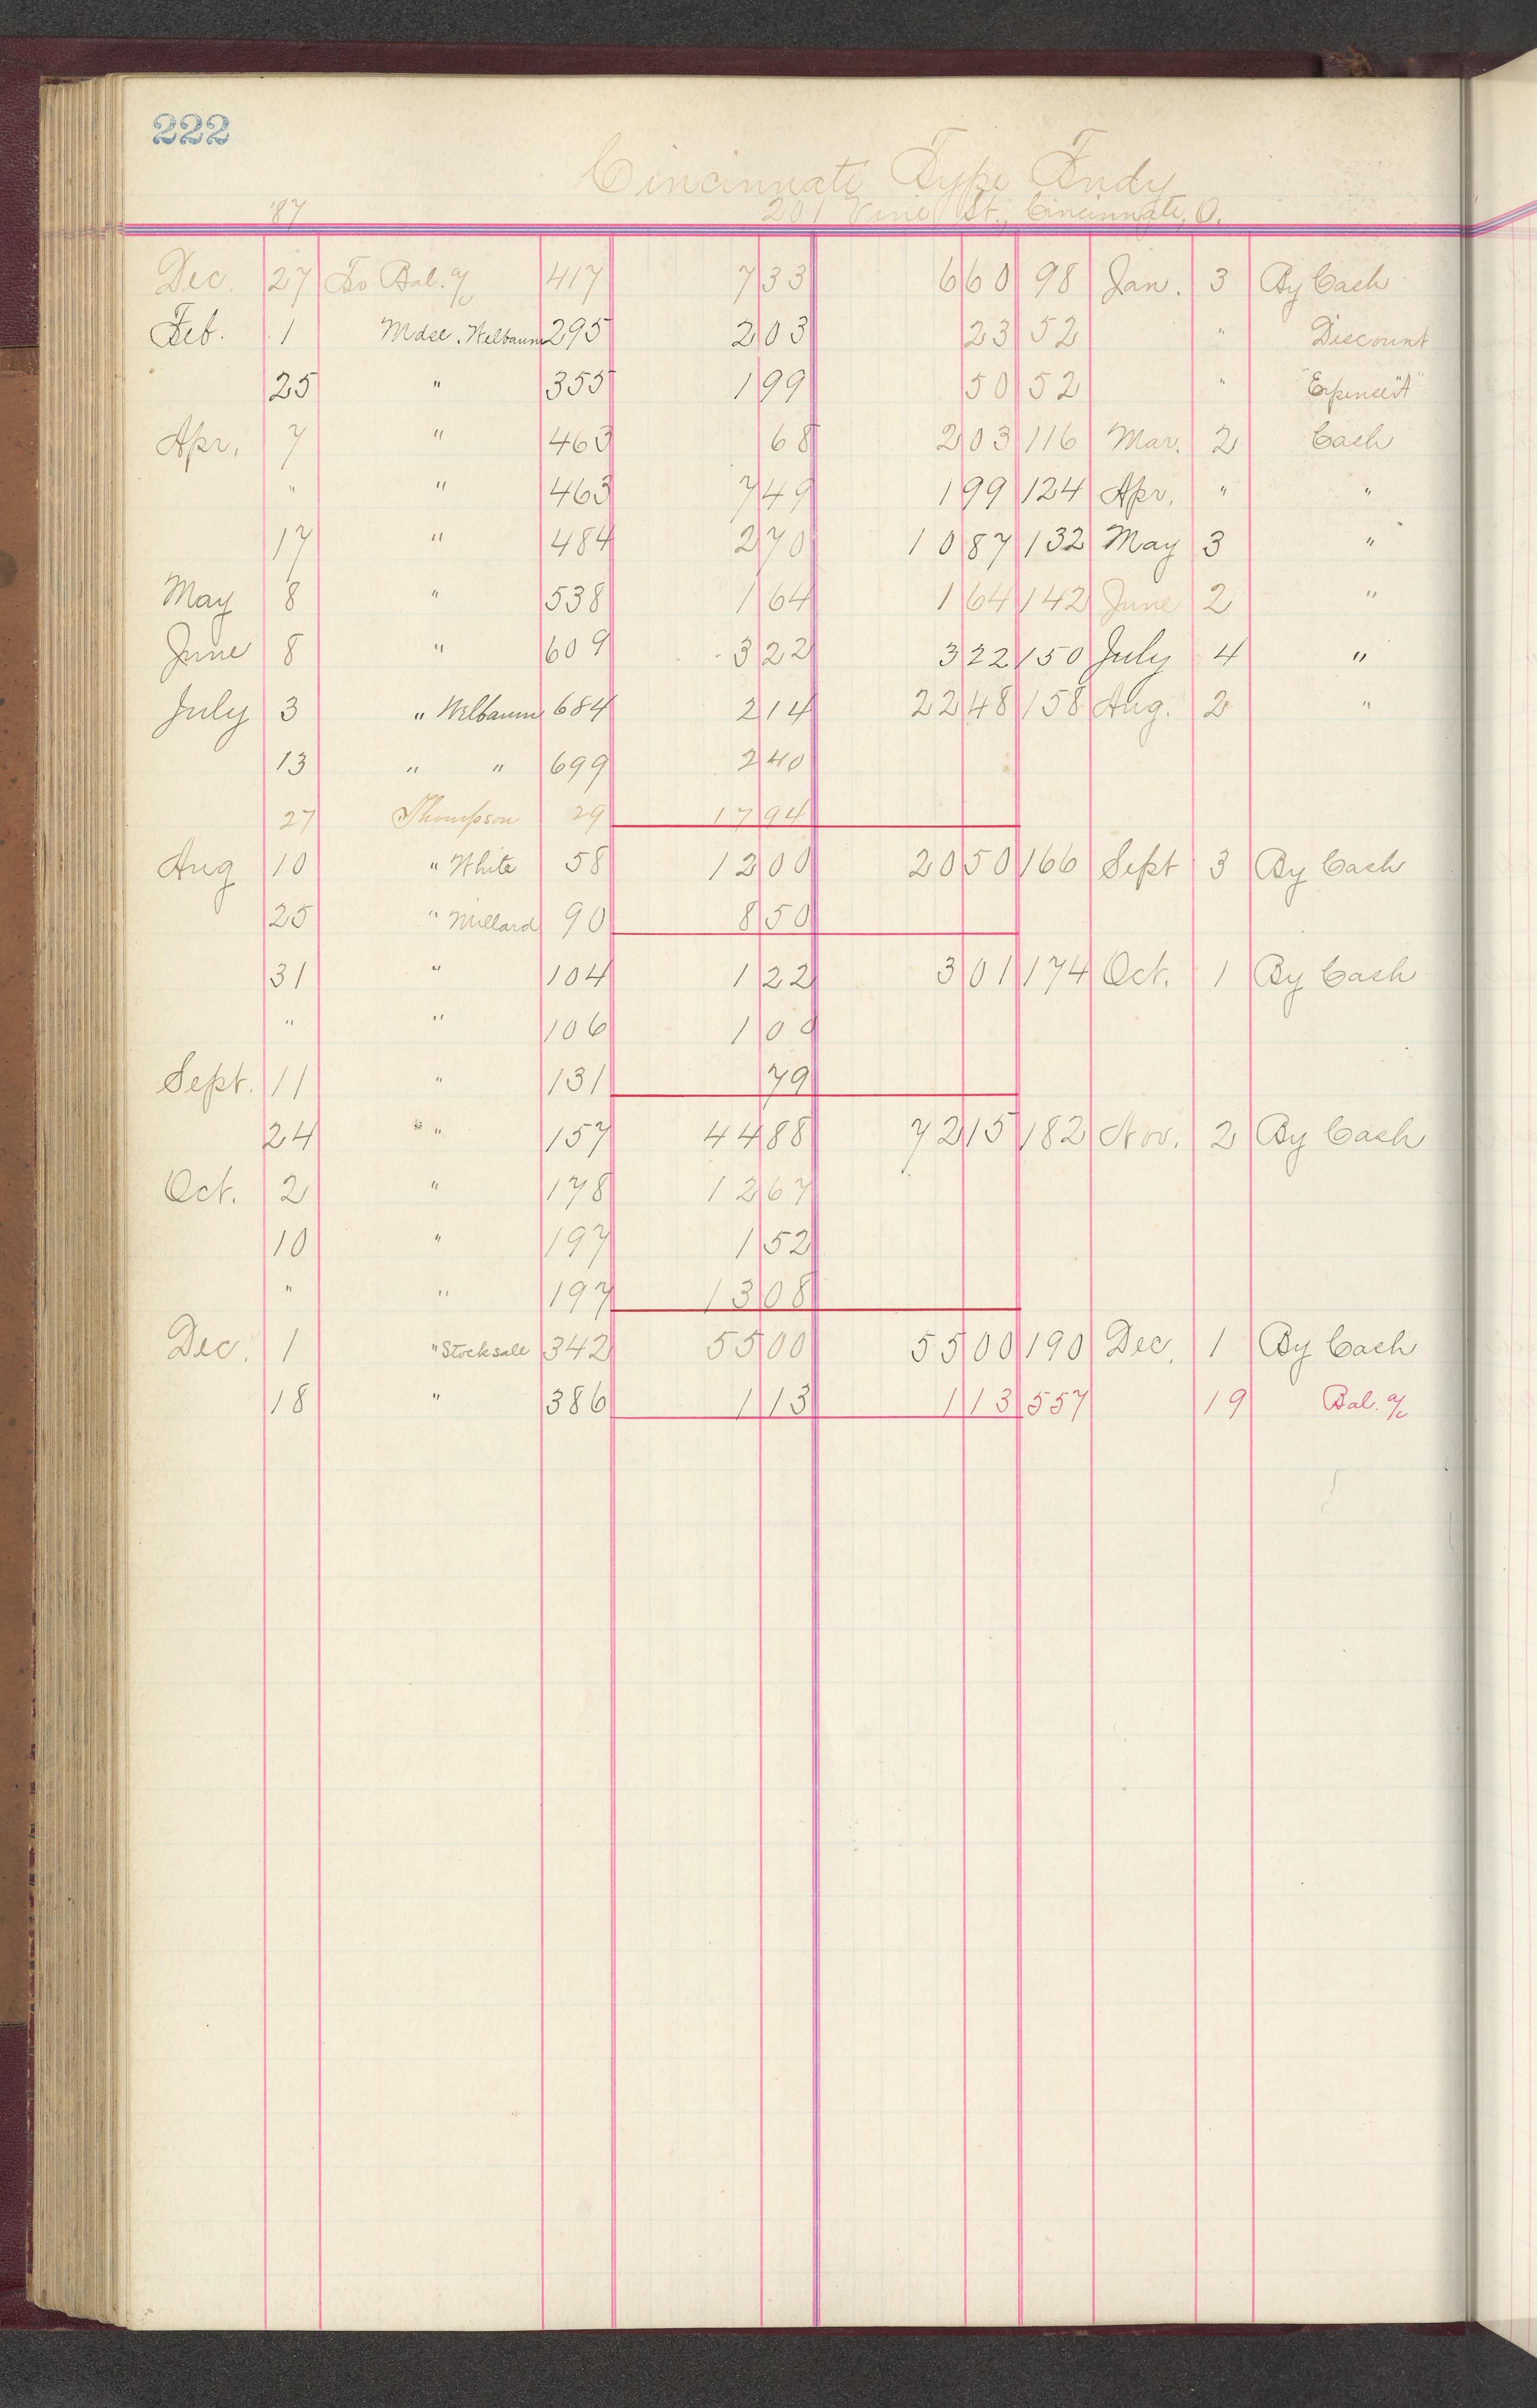 222
Cincinnati Type Fndy
'87 201 Vine St., Cincinnati, O.
Dec. 27 To Bal. a/c 417 7 33 6 60 98 Jan. 3 By Cash
Feb. 1 Mdse. Welbaum 295 2 03 23 52 " Discount
25 " 355 1 99 50 52 " Expense "A"
Apr. 7 " 463 68 2 03 116 Mar. 2 Cash
" " 463 7 49 1 99 124 Apr. " "
17 " 484 2 70 10 87 132 May 3 "
May 8 " 538 1 64 1 64 142 June 2 "
June 8 " 609 3 22 3 22 150 July 4 "
July 3 " Welbaum 684 2 14 22 48 158 Aug. 2 "
13 " " 699 2 40
27 Thompson 29 17 94
Aug 10 " White 58 12 00 20 50 166 Sept 3 By Cash
25 " Millard 90 8 50
31 " 104 1 22 3 01 174 Oct. 1 By Cash
" " 106 1 00
Sept. 11 " 131 79
24 " 157 44 88 72 15 182 Nov. 2 By Cash
Oct. 2 " 178 12 67
10 " 197 1 52
" " 197 13 08
Dec. 1 " Stocksale 342 55 00 55 00 190 Dec. 1 By Cash
18 " 386 1 13 1 13 557 19 Bal. a/c